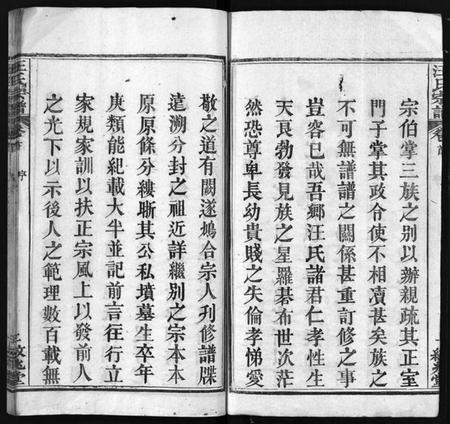 汪氏宗譜
卷首
宗伯掌三族之別以辦親疏其正室
門子掌其政令使不相瀆甚矣族之
不可無譜譜之關係甚重訂修之事
豈容已哉吾鄉汪氏諸君仁孝性生
天良勃發見族之星羅碁布世次茫
然恐尊卑長幼貴賤之失倫孝悌愛
敬之道有闕遂鳩合宗人刋修譜牒
遠溯分封之祖近詳繼別之宗本本
原原條分縷晰其公私墳墓生卒年
庚類能紀載大半並記前言往行立
家規家訓以扶正宗風上以發前人
之光下以示後人之範理數百載無
汪氏宗譜
卷首
序